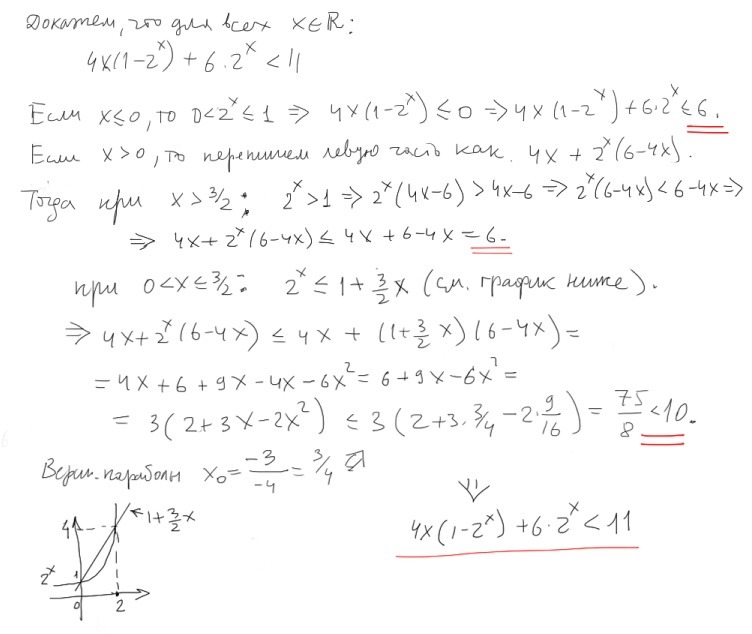 Докажем, что для всех x∈ℝ:
4x(1-2^x) + 6·2^x < 11
Если x≤0, то 0<2^x≤1 ⇒ 4x(1-2^x) ≤ 0 ⇒ 4x(1-2^x)+6·2^x ≤ 6.
Если x>0, то перепишем левую часть как 4x + 2^x(6-4x).
Тогда при x > 3/2: 2^x>1 ⇒ 2^x(4x-6) > 4x-6 ⇒ 2^x(6-4x) < 6-4x ⇒
⇒ 4x+2^x(6-4x) ≤ 4x+6-4x = 6.
при 0<x≤3/2: 2^x ≤ 1+3/2x (см. график ниже).
⇒ 4x+2^x(6-4x) ≤ 4x + (1+3/2x)(6-4x) =
= 4x+6+9x-4x-6x^2 = 6+9x-6x^2 =
= 3(2+3x-2x^2) ≤ 3(2+3·3/4-2·9/16) = 75/8 < 10.
Верш. параболы x₀ = -3/-4 = 3/4
⇓
4x(1-2^x)+6·2^x < 11
1+3/2x
4
2^x
1
0
2